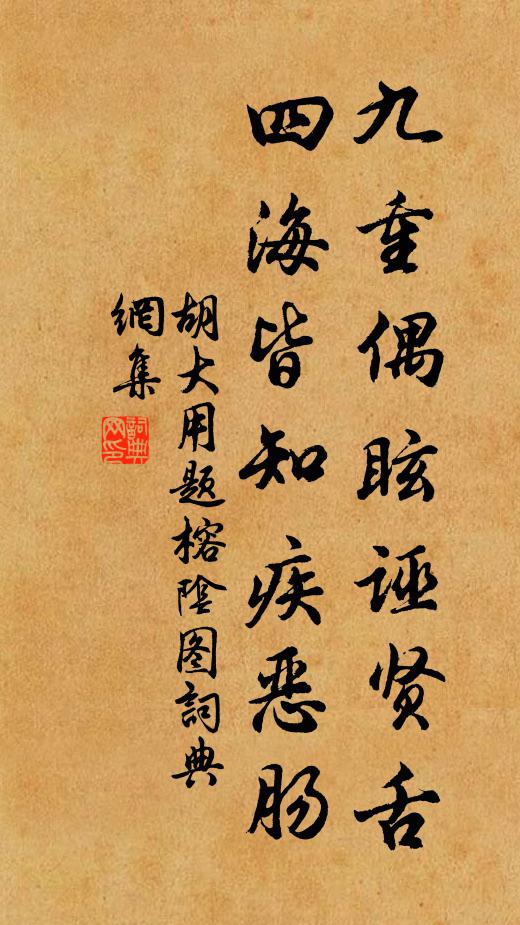 九重偶眩诬贤舌
四海皆知疾恶肠
胡大用题榕阴图詞典
網集
詞典
网印